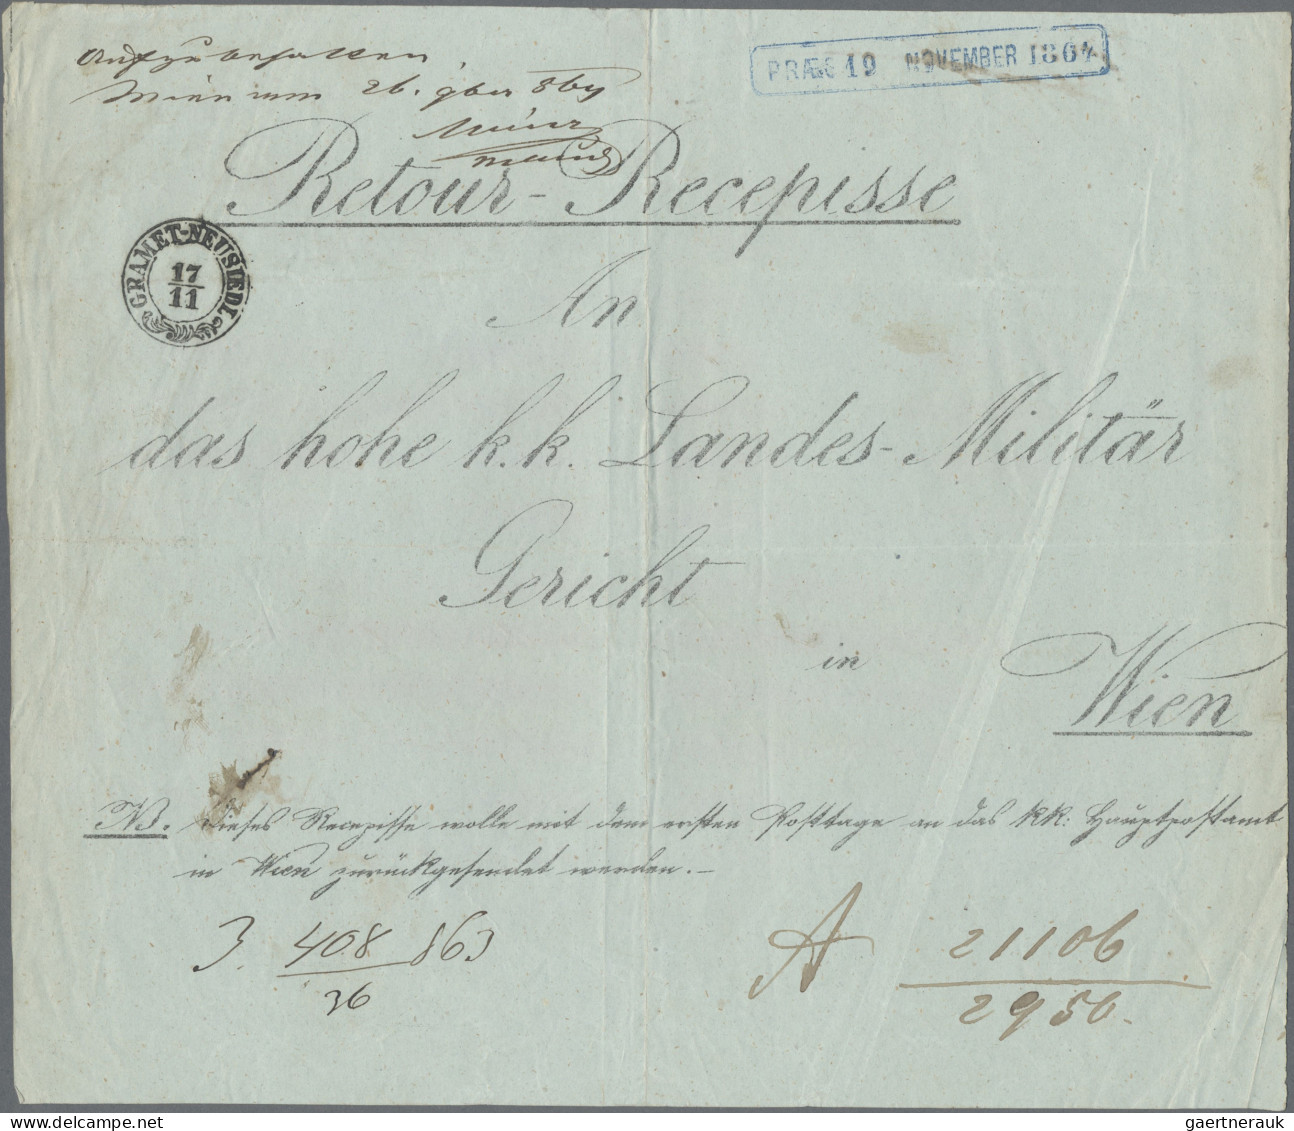 Aufzubehalten
Wien am 26. 9ber 864
PRÆS 19 NOVEMBER 1864
Retour-Recepisse
GRAMET-NEUSIEDL
17
11
An
das hohe k.k. Landes-Militär
Gericht
in
Wien
NB. Dieses Recepisse wolle mit dem ersten Posttage an das kk: Hauptpostamt
in Wien zurückgesendet werden.-
3. 408 863
36
A 21106
2950.
gaertnerauk